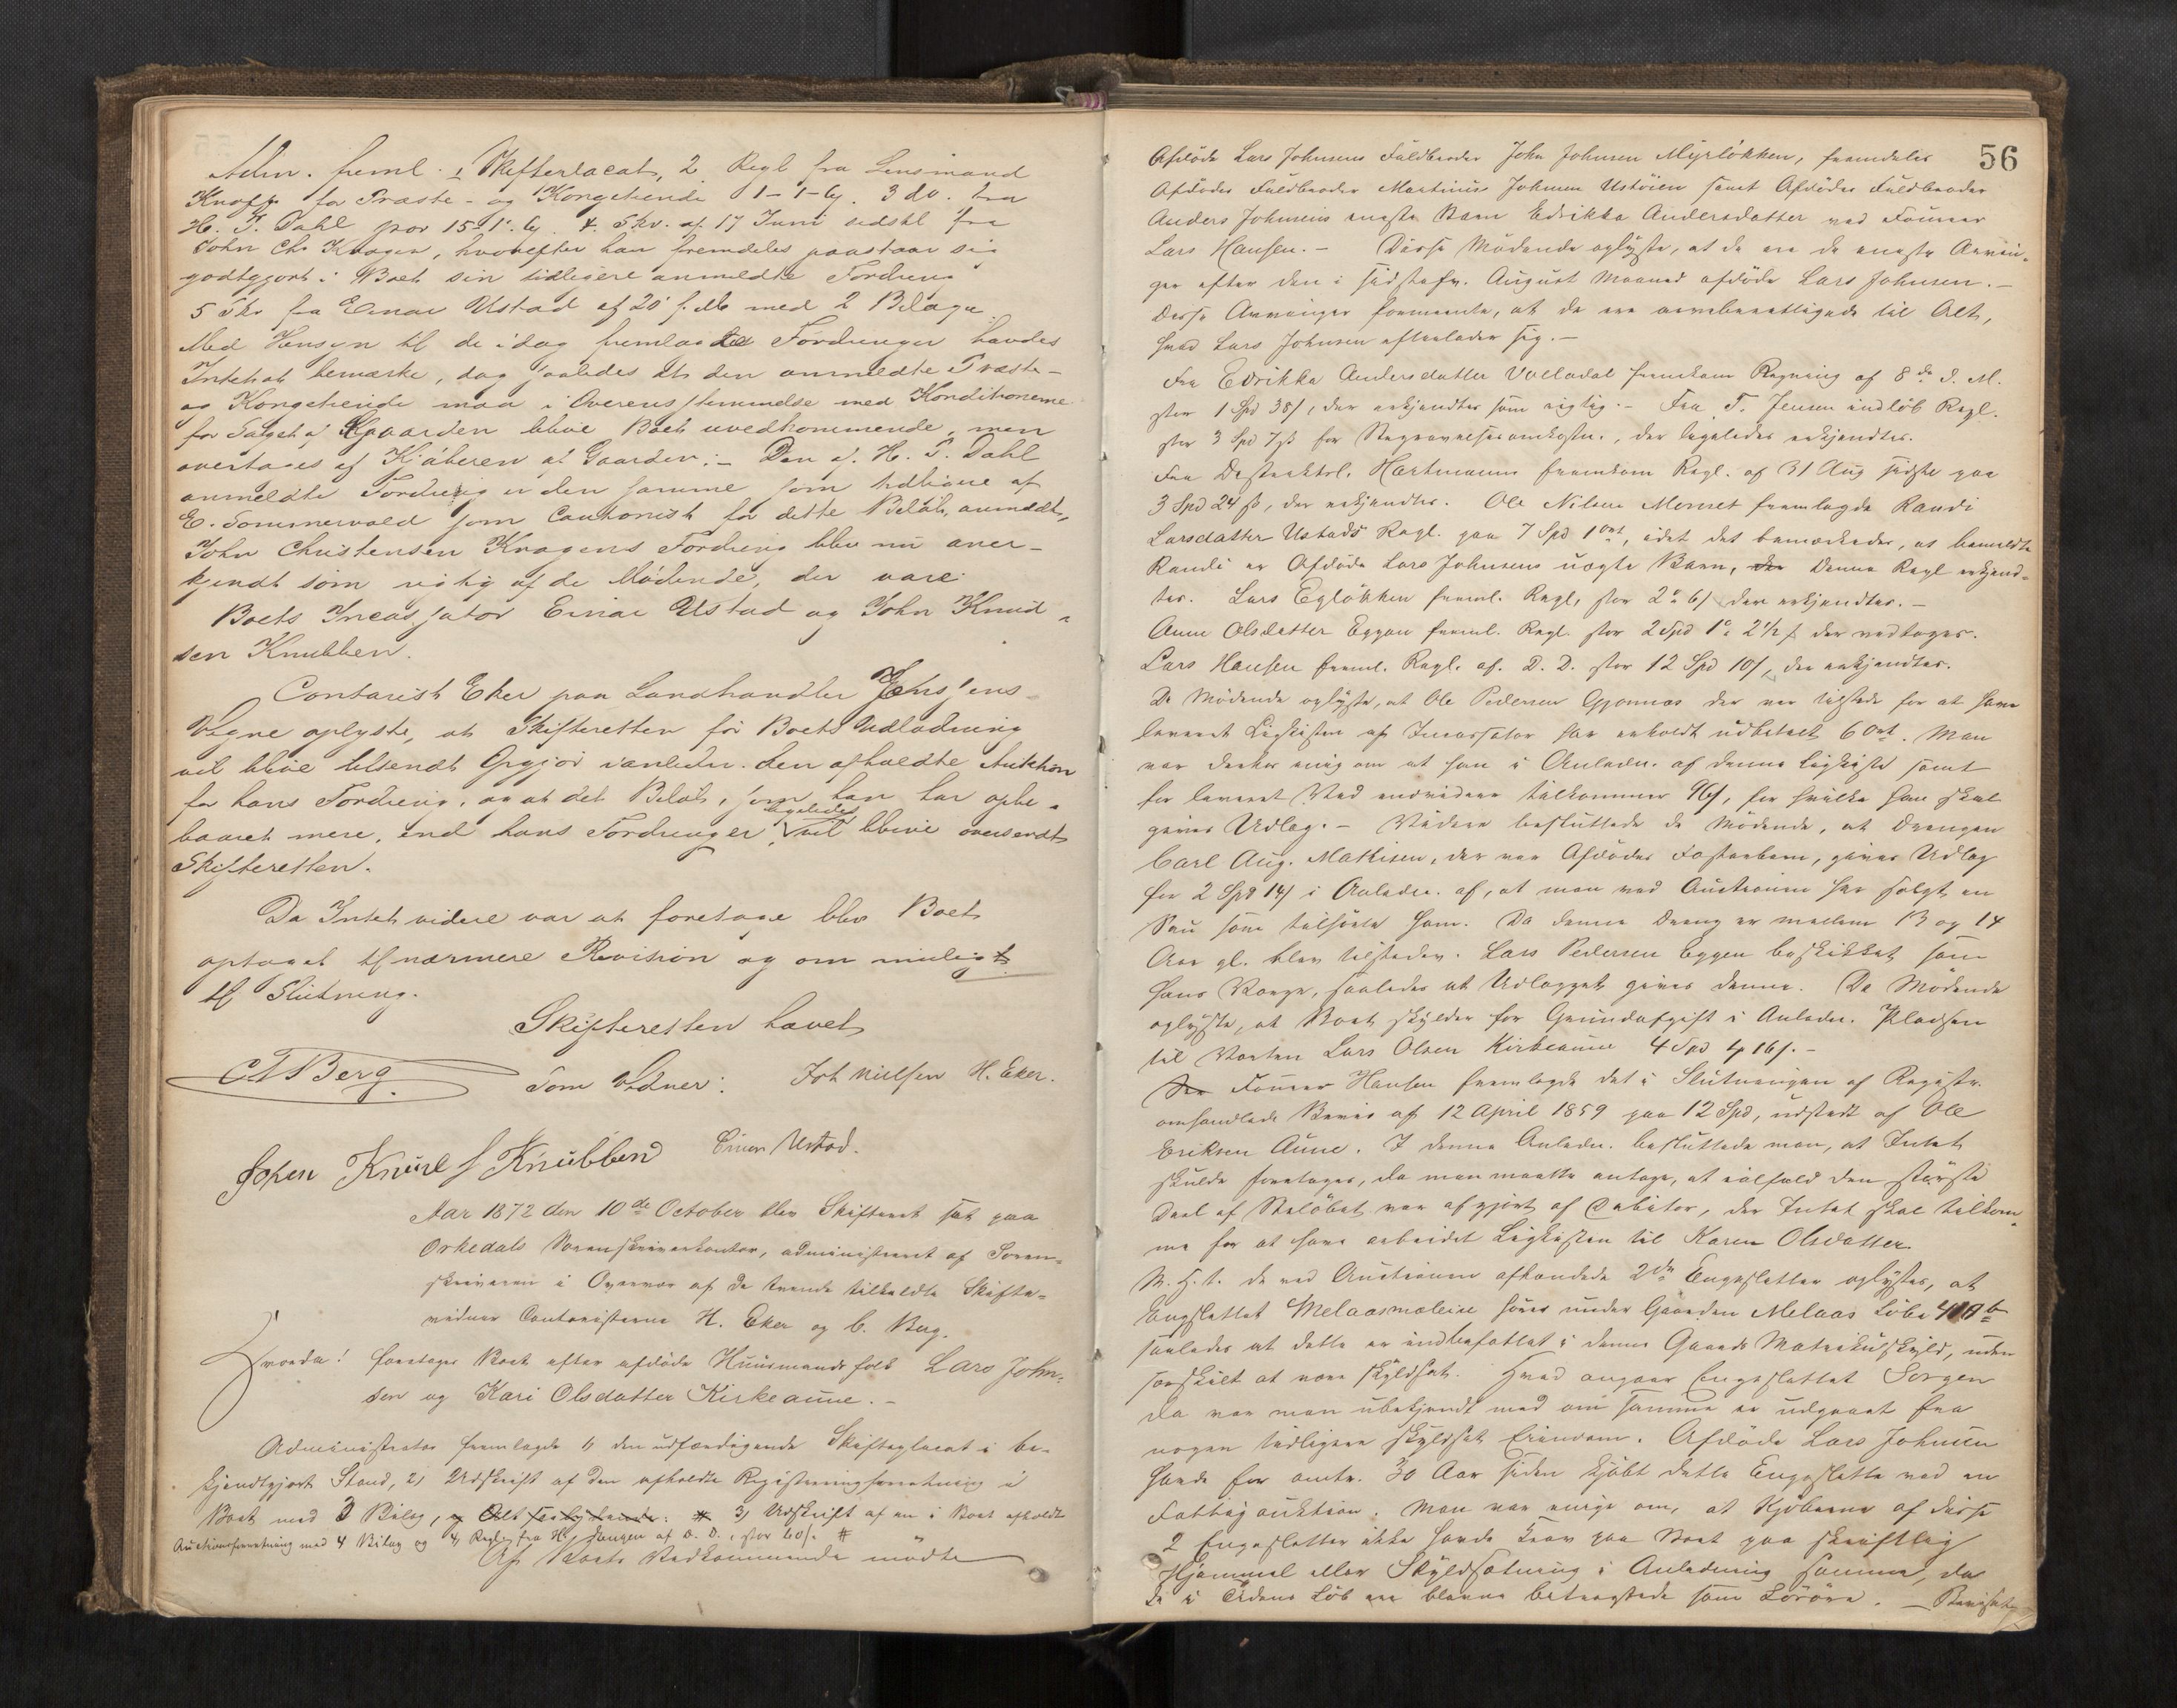 Adm. freml. 1 Skifteplacat, 2 Regl fra Lensmand
Knoff for Præste- og Kongetiende 1-1-6ʃ. 3 do. fra
H. P. Dahl stor 15-1-6ʃ. 4. Skr. af 17 Juni sidstl fra
John Chr. Kragen, hvorefter han fremdeles paastaar sig
godtgjort i Boet sin tidligere anmeldte Fordring
5 Skr fra Einar Ustad af 20 f. M. med 2 Bilage.
Med Hensyn til de idag fremlagte Fordringer havdes
Intet at bemærke, dog saaledes at den anmeldte Præste-
og Kongetiende maa i Overensstemmelse med Konditionerne
for Salget af Gaarden blive Boet uvedkommende, men
overtages af Kjøberen af Gaarden. – Den af H. P. Dahl
anmeldte Fordring er den samme som tidligere af
E. Sommervold som Cautionist for dette Beløb, anmeldt,
John Christensen Kragens Fordring blev nu aner-
kjendt som rigtig af de Mødende, der vare
Boets Incassator Einar Ustad og John Knud-
sen Knubben.
Contorist Eker paa Landhandler Jens
Vegne oplyste, at Skifteretten før Boets Udlodning
vil blive tilsendt Opgjør i anledn. den afholdte Auktion
for hans Fordring, og at det Beløb, som han har oppe-
baaret mere, end hans Fordringer, ligeledes vil blive oversendt
Skifteretten.
Da Intet videre var at foretage blev Boet
optaget til nærmere Revision og om muligt
til Slutning.
Skifteretten hævet
C A Berg
Som Vidner: Joh Nielsen H. Eker.
John Knuds Knubben Einar Ustad.
Aar 1872 den 10de October blev Skifteret sat paa
Orkedals Sorenskriverkontor, administreret af Soren-
skriveren i Overvær af de tvende tilkaldte Skifte-
vidner Contoristerne H. Eker og C. Berg.
Hvorda! foretages Boet efter afdøde Huusmandsfolk Lars John-
sen og Kari Olsdatter Kirkeaune. –
Administrator fremlagde 1, den udfærdigende Skifteplacat i be-
kjendtgjort Stand, 2, Udskrift af den afholdte Registreringsforretning i
Boet med 3 Bilag, # 3, Udskrift af en i Boet afholdt
Auctionsforretning med 4 Bilag og 4, Regl. fra Hj. Jangen af D. D., stor 60ʃ. #
Af Boets Vedkommende mødte
56
Afdøde Lars Johnsens Fuldbroder John Johnsen Myrløkken, fremdeles
Afdødes Fuldbroder Martinus Johnsen Ustøien samt Afdødes Fuldbroder
Anders Johnsens eneste Barn Edrikka Andersdatter ved Fourer
Lars Hansen. – Disse Mødende oplyste, at de ere de eneste Arvin-
ger efter den i sidstafv. August Maaned afdøde Lars Johnsen. –
Disse Arvinger formeente, at de ere arveberettigede til Alt,
hvad Lars Johnsen efterlader sig. –
Fra Edrikka Andersdatter Volladal fremkom Regning af 8de d. M.
stor 1 Spd 38ʃ, der erkjendtes som rigtig. – Fra T. Jensen indløb Regl.
stor 3 Spd 7ʃ for Begravelsesomkostn., der ligeledes erkjendtes.
Fra Distriktsl. Hartmann fremkom Regl. af 31 Aug sidste paa
3 Spd 24ʃ, der erkjendtes. Ole Nilsen Monset fremlagde Randi
Larsdatter Ustads Regl. paa 7 Spd 1 ort, idet det bemærkedes, at bemeldte
Randi er Afdøde Lars Johnsens uægte Barn, Denne Regl erkjend-
tes. Lars Egløkken freml. Regl, stor 2-6ʃ der erkjendtes. –
Anne Olsdatter Eggan freml. Regl. stor 2 Spd 1-2½ʃ der vedtoges.
Lars Hansen freml. Regl. af D. D. stor 12 Spd 10ʃ, der erkjendtes.
De Mødende oplyste, at Ole Pedersen Gjønnæs der var tilstede for at have
leveret Ligkisten af Incassator har erholdt udbetalt 6 Ort. Man
var derhos enig om at han i Anledn. af denne Ligkiste samt
for leveret Ved endvidere tilkommer 96ʃ, for hvilke han skal
gives Udlæg. – Videre besluttede de Mødende, at Drengen
Carl Aug. Mathisen, der var Afdødes Fosterbarn, gives Udlæg
for 2 Spd 14ʃ i Anledn. af, at man ved Auctionen har solgt en
Sau som tilhørte ham. Da denne Dreng er mellem 13 og 14
Aar gl. blev tilstedev. Lars Pedersen Eggen beskikket som
hans Værge, saaledes at Udlægget gives denne. De Mødende
oplyste, at Boet skylder for Grundafgift i Anledn. Pladsen
til Værten Lars Olsen Kirkeaune 4 Spd 4 ʃ 16ʃ. –
Fourer Hansen fremlagde det i Slutningen af Registr.
omhandlede Bevis af 12 April 1859 paa 12 Spd, udstedt af Ole
Eriksen Aune. I denne Anledn. besluttede man, at Intet
skulde foretages, da man maatte antage, at ialfald den største
Deel af Beløbet var afgjort af Debitor, der Intet skal tilkom-
me for at have arbeidet Ligkisten til Karen Olsdatter
M. H. t. de ved Auctionen afhændede 2de Engesletter oplystes, at
Engslettet Melaasmoleine hører under Gaarden Melaas Løbe
saaledes at dette er indbefattet i denne Gaards Matrikulskyld, uden
særskilt at være skyldsat. Hvad angaar Engeslettet Sorgen
da var man ubekjendt med om samme er udgaaet fra
nogen tidligere skyldsat Eiendom. Afdøde Lars Johnsen
havde for omtr. 30 Aar siden kjøbt dette Engeslette ved en
Fattigauktion. Man var enige om, at Kjøberne af disse
2 Engesletter ikke havde Krav paa Boet paa skriftlig
Hjemmel eller Skyldsætning i Anledning samme, da
de i Tidens Løb ere blevne betragtede som Løsøre. – Bevislig